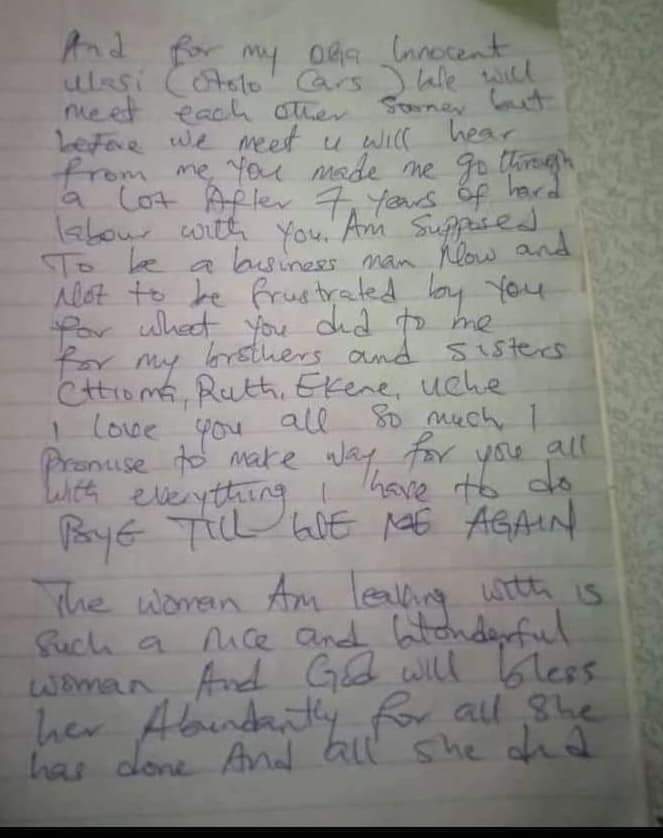 And for my oga Innocent
ulasi (Ototo Cars) We will
meet each other sooner but
before we meet u will hear
from me, You made me go through
a lot After 7 years of hard
labour with you. Am Supposed
To be a business man Now and
Not to be frustrated by you
for what you did to me
for my brothers and sisters
Chioma, Ruth, Ekene, uche
I love you all so much I
Promise to make way for you all
with everything I have to do
ByE TILL WE AGAIN
The woman Am leaving with is
Such a nice and Wonderful
woman And God will bless
her Abundantly for all she
has done And all she did